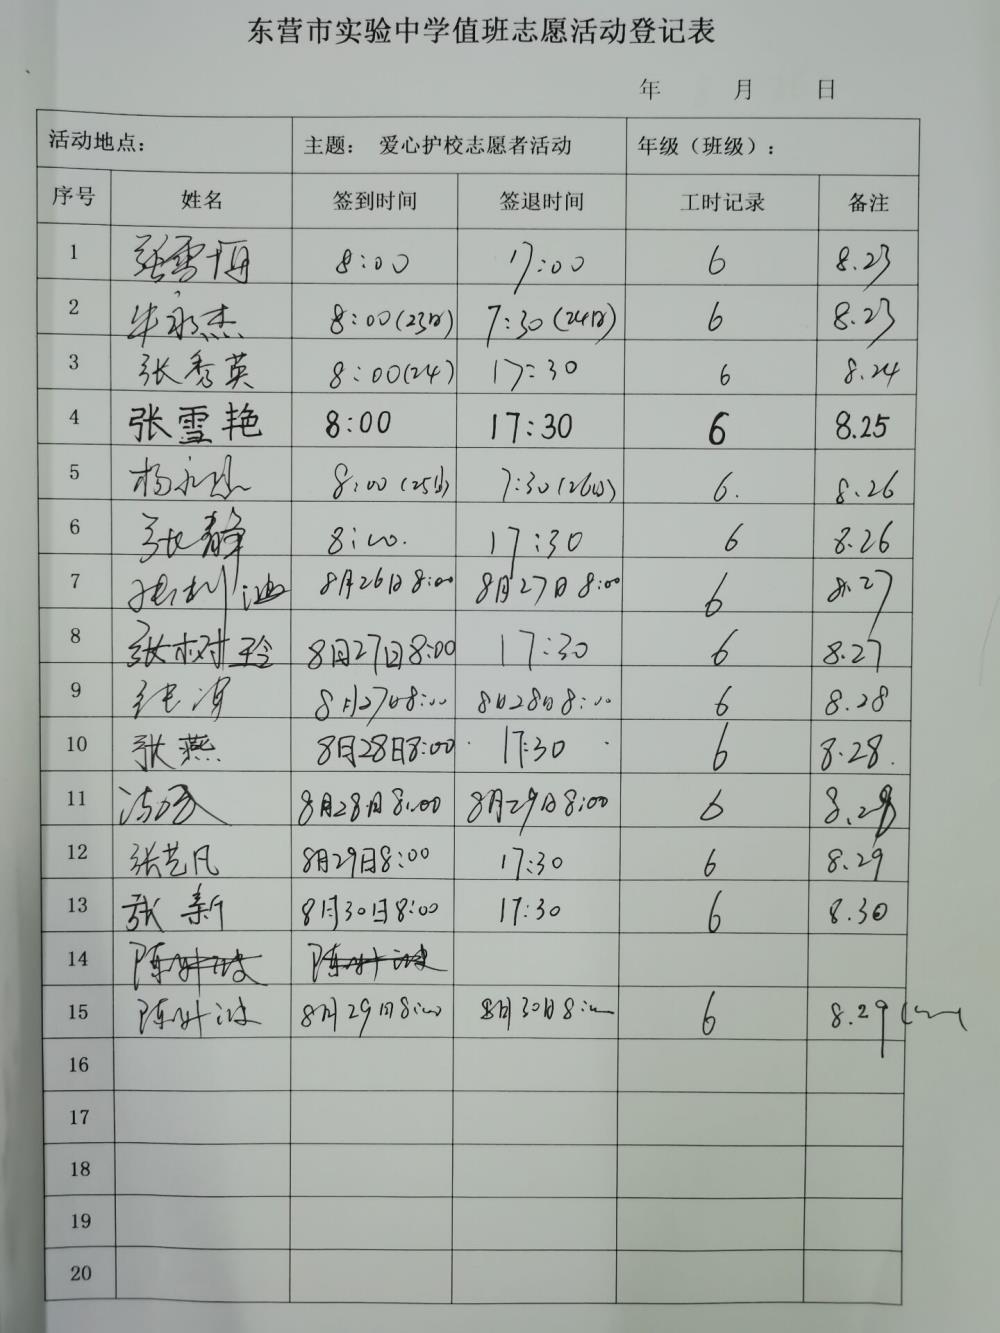 东营市实验中学值班志愿活动登记表
年 月 日
活动地点： 主题： 爱心护校志愿者活动 年级（班级）：
序号 姓名 签到时间 签退时间 工时记录 备注
1 张雪梅 8:00 17:00 6 8.23
2 牛永杰 8:00(23日) 7:30(24日) 6 8.23
3 张秀英 8:00(24) 17:30 6 8.24
4 张雪艳 8:00 17:30 6 8.25
5 杨永 8:00(25日) 7:30(26日) 6. 8.26
6 张静 8:00. 17:30 6 8.26
7 8月26日8:00 8月27日8:00 6 8.27
8 张树玲 8月27日8:00 17:30 6 8.27
9 张 8月27日8:00 8月28日8:00 6 8.28
10 张燕 8月28日8:00 17:30 6 8.28.
11 8月28日8:00 8月29日8:00 6
12 张艺凡 8月29日8:00 17:30 6 8.29
13 张新 8月30日8:00 17:30 6 8.30
14
15 陈叶波 8月29日8:00 8月30日8:00 6 8.29
16
17
18
19
20